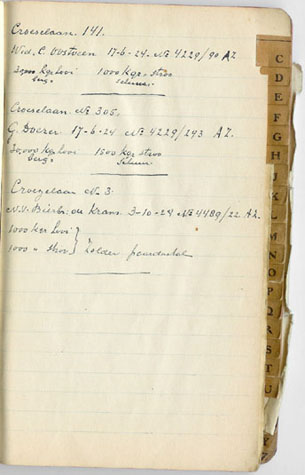 Croeselaan. 141.
Wed. C. Oostveen 17-6-24. № 4229/90 AZ
1000 kgr stroo
berg. schuur.
Croeselaan. № 305.
G. Doerer. 17-6-24 № 4229/293 AZ.
30,000 kg hooi 1500 kgr stroo
berg. schuur.
Croeselaan № 3.
N.V. Bierbr. de Krans. 3-10-24 № 4489/22 AZ.
1000 kgr hooi
1000 " stroo } Zolder paardestal
C
D
E
F
G
H
J
K
L
M
N
O
P
Q
R
S
T
U